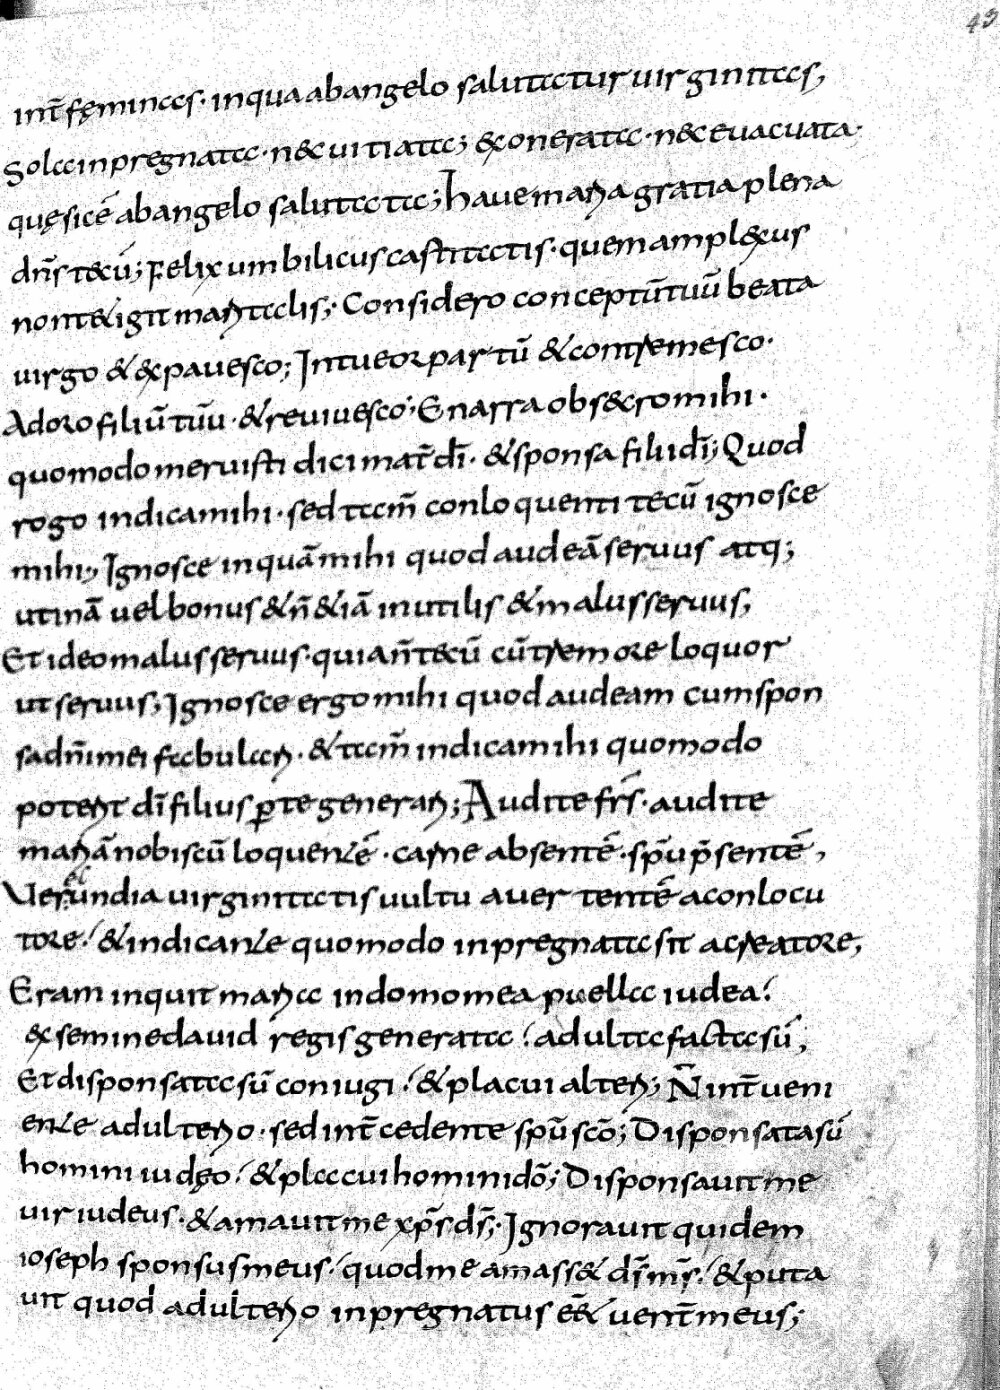 43
int̄ fęminas· inqua abangelo salutatur uirginitas,
Sola inpregnata· nec uitiata; & onerata· nec euacuata·
quę sic ē abangelo salutata; haue maria gratia plena
dn̄s tecū; Felix umbilicus castitatis· quem amplexus
non tetigit maritalis; Considero conceptū tuū beata
uirgo & expauesco; Intueor partū & contremesco·
Adoro filiū tuū· & reuiuesco; Enarra obsecro mihi·
quomodo meruisti dici mat̄ dī· & sponsa filii dī; Quod
rogo indica mihi· sed tam̄ conloquenti tecū ignosce
mihi; Ignosce inquā mihi quod audeā seruus atq;
utinā uel bonus & n̄ &iā inutilis & malus seruus;
Et ideo malus seruus· quia n̄ tecū cū tremore loquor
ut seruus; Ignosce ergo mihi quod audeam cum spon
sa dn̄i mei fabulari· & tam̄ indica mihi quomodo
poterit dī filius ꝑ te generari; Audite frs̄· audite
mariā nobiscū loquentē· carne absentē· spū p̄sentē,
Uerecundia uirginitatis uultu auertentē aconlocu
tore! & indicante quomodo inpregnata sit acreatore,
Eram inquit maria in domo mea puella iudea!
ex semine dauid regis generata! adulta facta sū,
Et disponsata sū coniugi! & placui alteri; N̄ int̄ueni
ente adulterio· sed int̄cedente spū scō; Disponsata sū
homini iudęo! & placui homini dō; Disponsauit me
uir iudeus· & amauit me xp̄s ds̄; Ignorauit quidem
ioseph sponsus meus! quod me amass& ds̄ ms̄! & puta
uit quod adulterio inpregnatus eē& uent̄ meus;